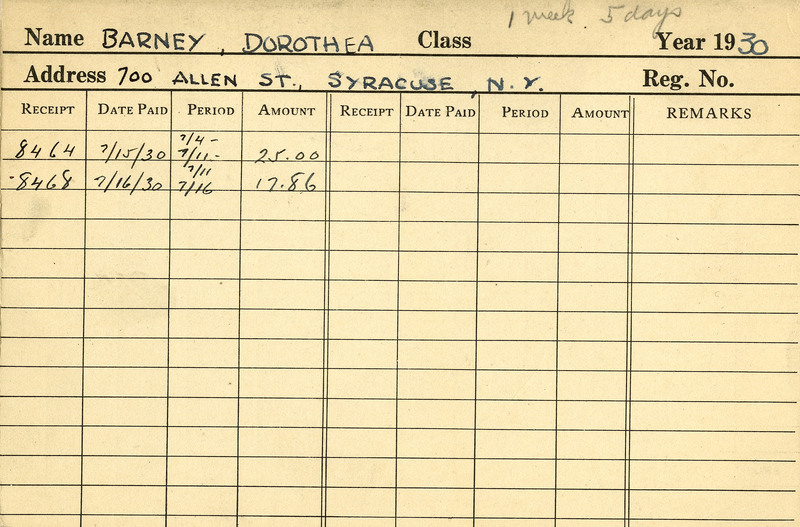 1 week 5 days
Name BARNEY, DOROTHEA Class Year 1930
Address 700 ALLEN ST., SYRACUSE, N.Y. Reg. No.
RECEIPT DATE PAID PERIOD AMOUNT RECEIPT DATE PAID PERIOD AMOUNT REMARKS
7/4-
8464 7/15/30 7/11- 25.00
7/11
-8468 7/16/30 7/16 17.86